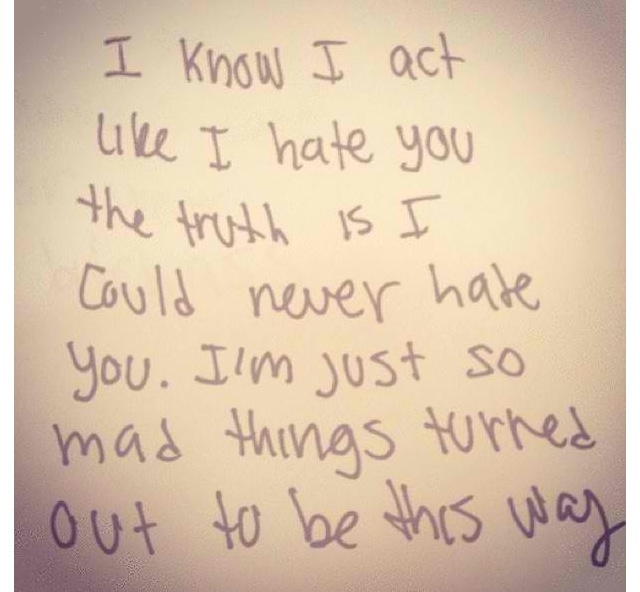 I know I act
like I hate you
the truth is I
could never hate
you. I'm just so
mad things turned
out to be this way